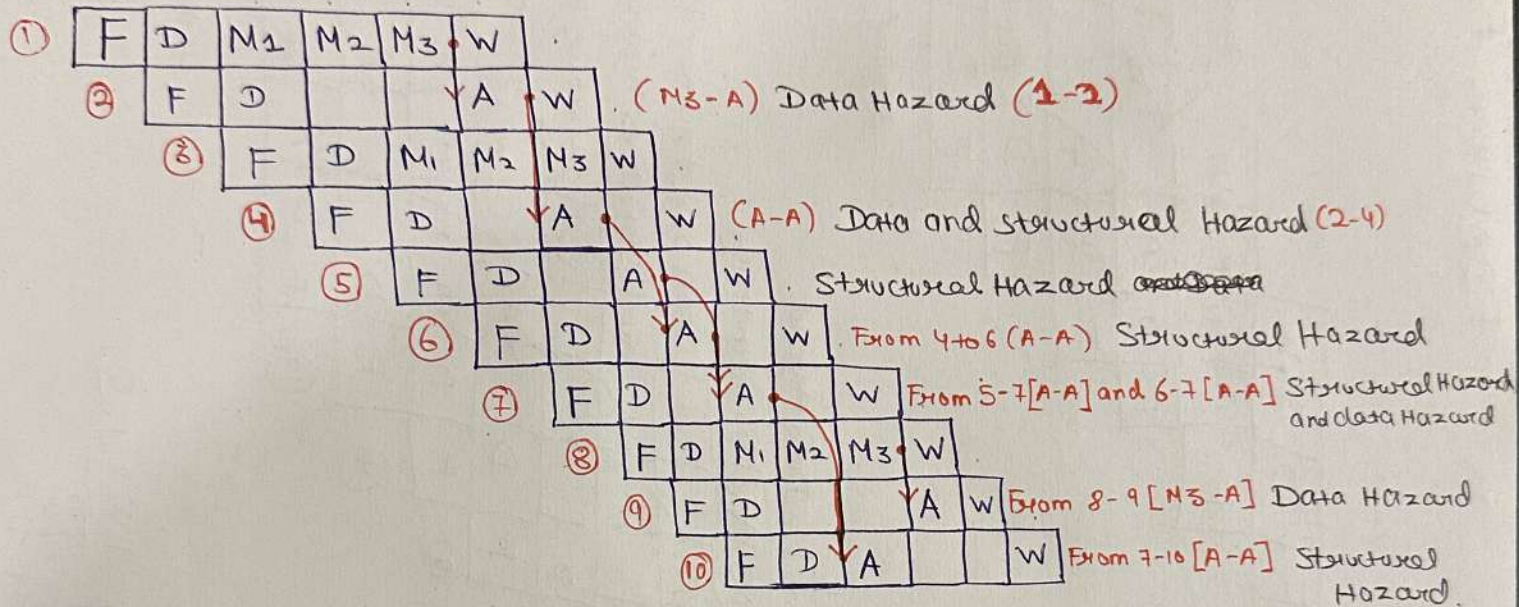 ① F D M1 M2 M3 W
② F D A W (M3-A) Data Hazard (1-2)
③ F D M1 M2 M3 W
④ F D A W (A-A) Data and structural Hazard (2-4)
⑤ F D A W Structural Hazard
⑥ F D A W From 4 to 6 (A-A) Structural Hazard
⑦ F D A W From 5-7 [A-A] and 6-7 [A-A] Structural Hazard
and data Hazard
⑧ F D M1 M2 M3 W
⑨ F D A W From 8-9 [M3-A] Data Hazard
⑩ F D A W From 7-10 [A-A] Structural
Hazard.